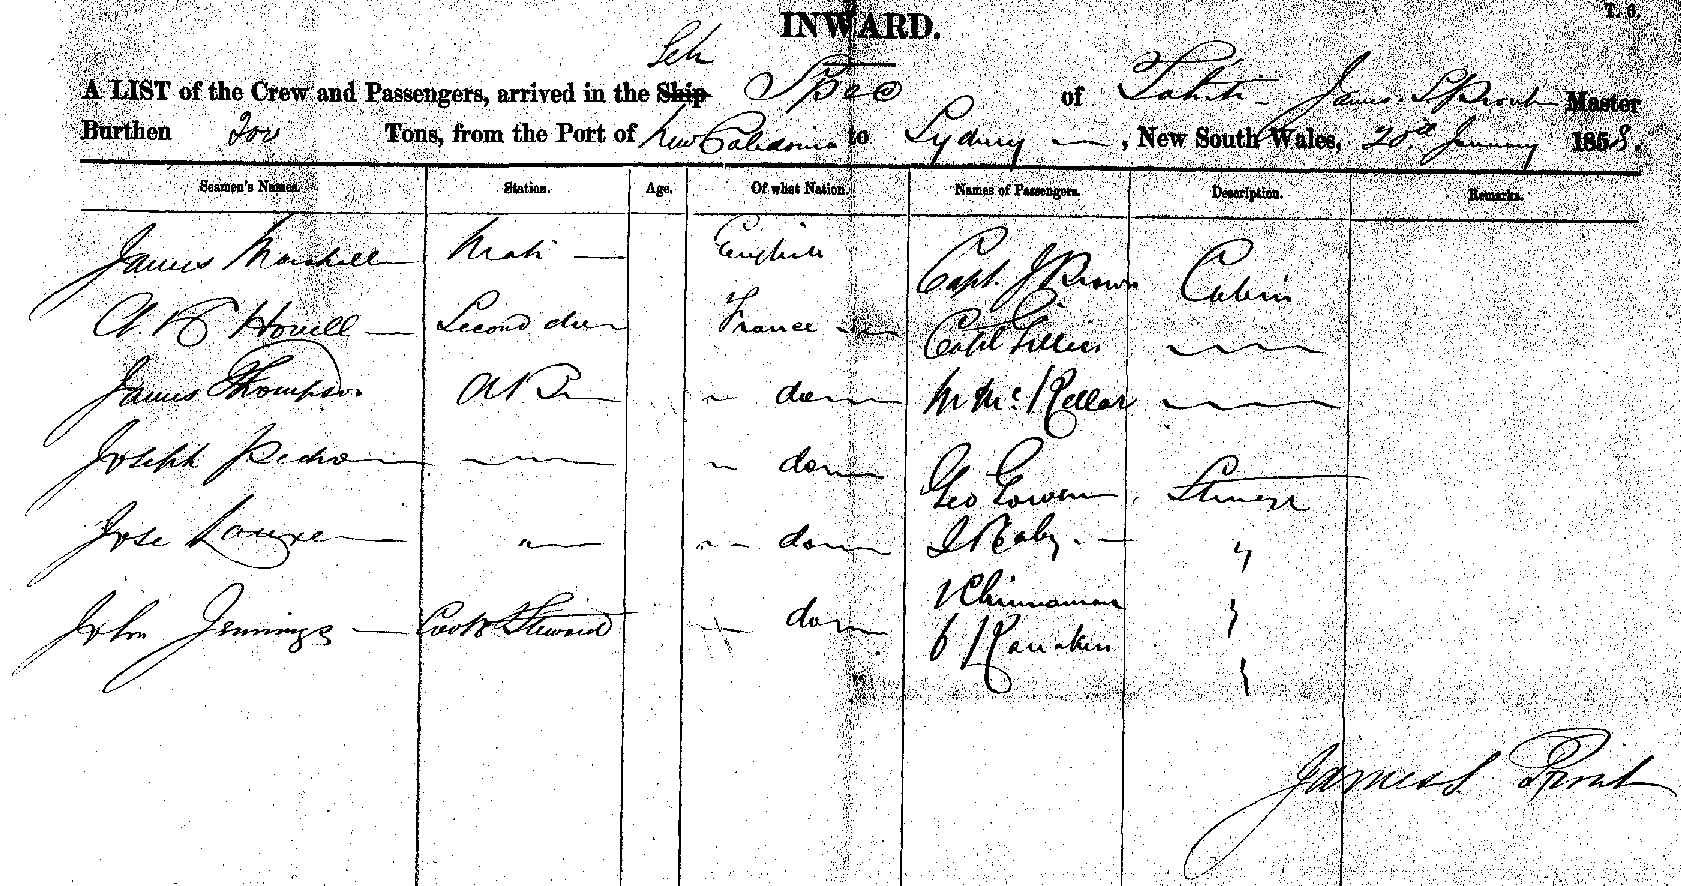 T. 6.
INWARD.
Sch
A LIST of the Crew and Passengers, arrived in the Ship Spec of Tahiti James S Prout Master
Burthen 200 Tons, from the Port of New Caledonia to Sydney, New South Wales, 20th January 1858.
Seamen's Names. Station. Age. Of what Nation. Names of Passengers. Description. Remarks.
James Marshall Mate English Capt. J Brown Cabin
A. B Hovell Second do France Capt
James Thompson A B do M McKellar
Joseph Pedro do Geo
Jose do J Raby
John Jennings Cook & Steward do Chinnaman
Rankin
James S Prout